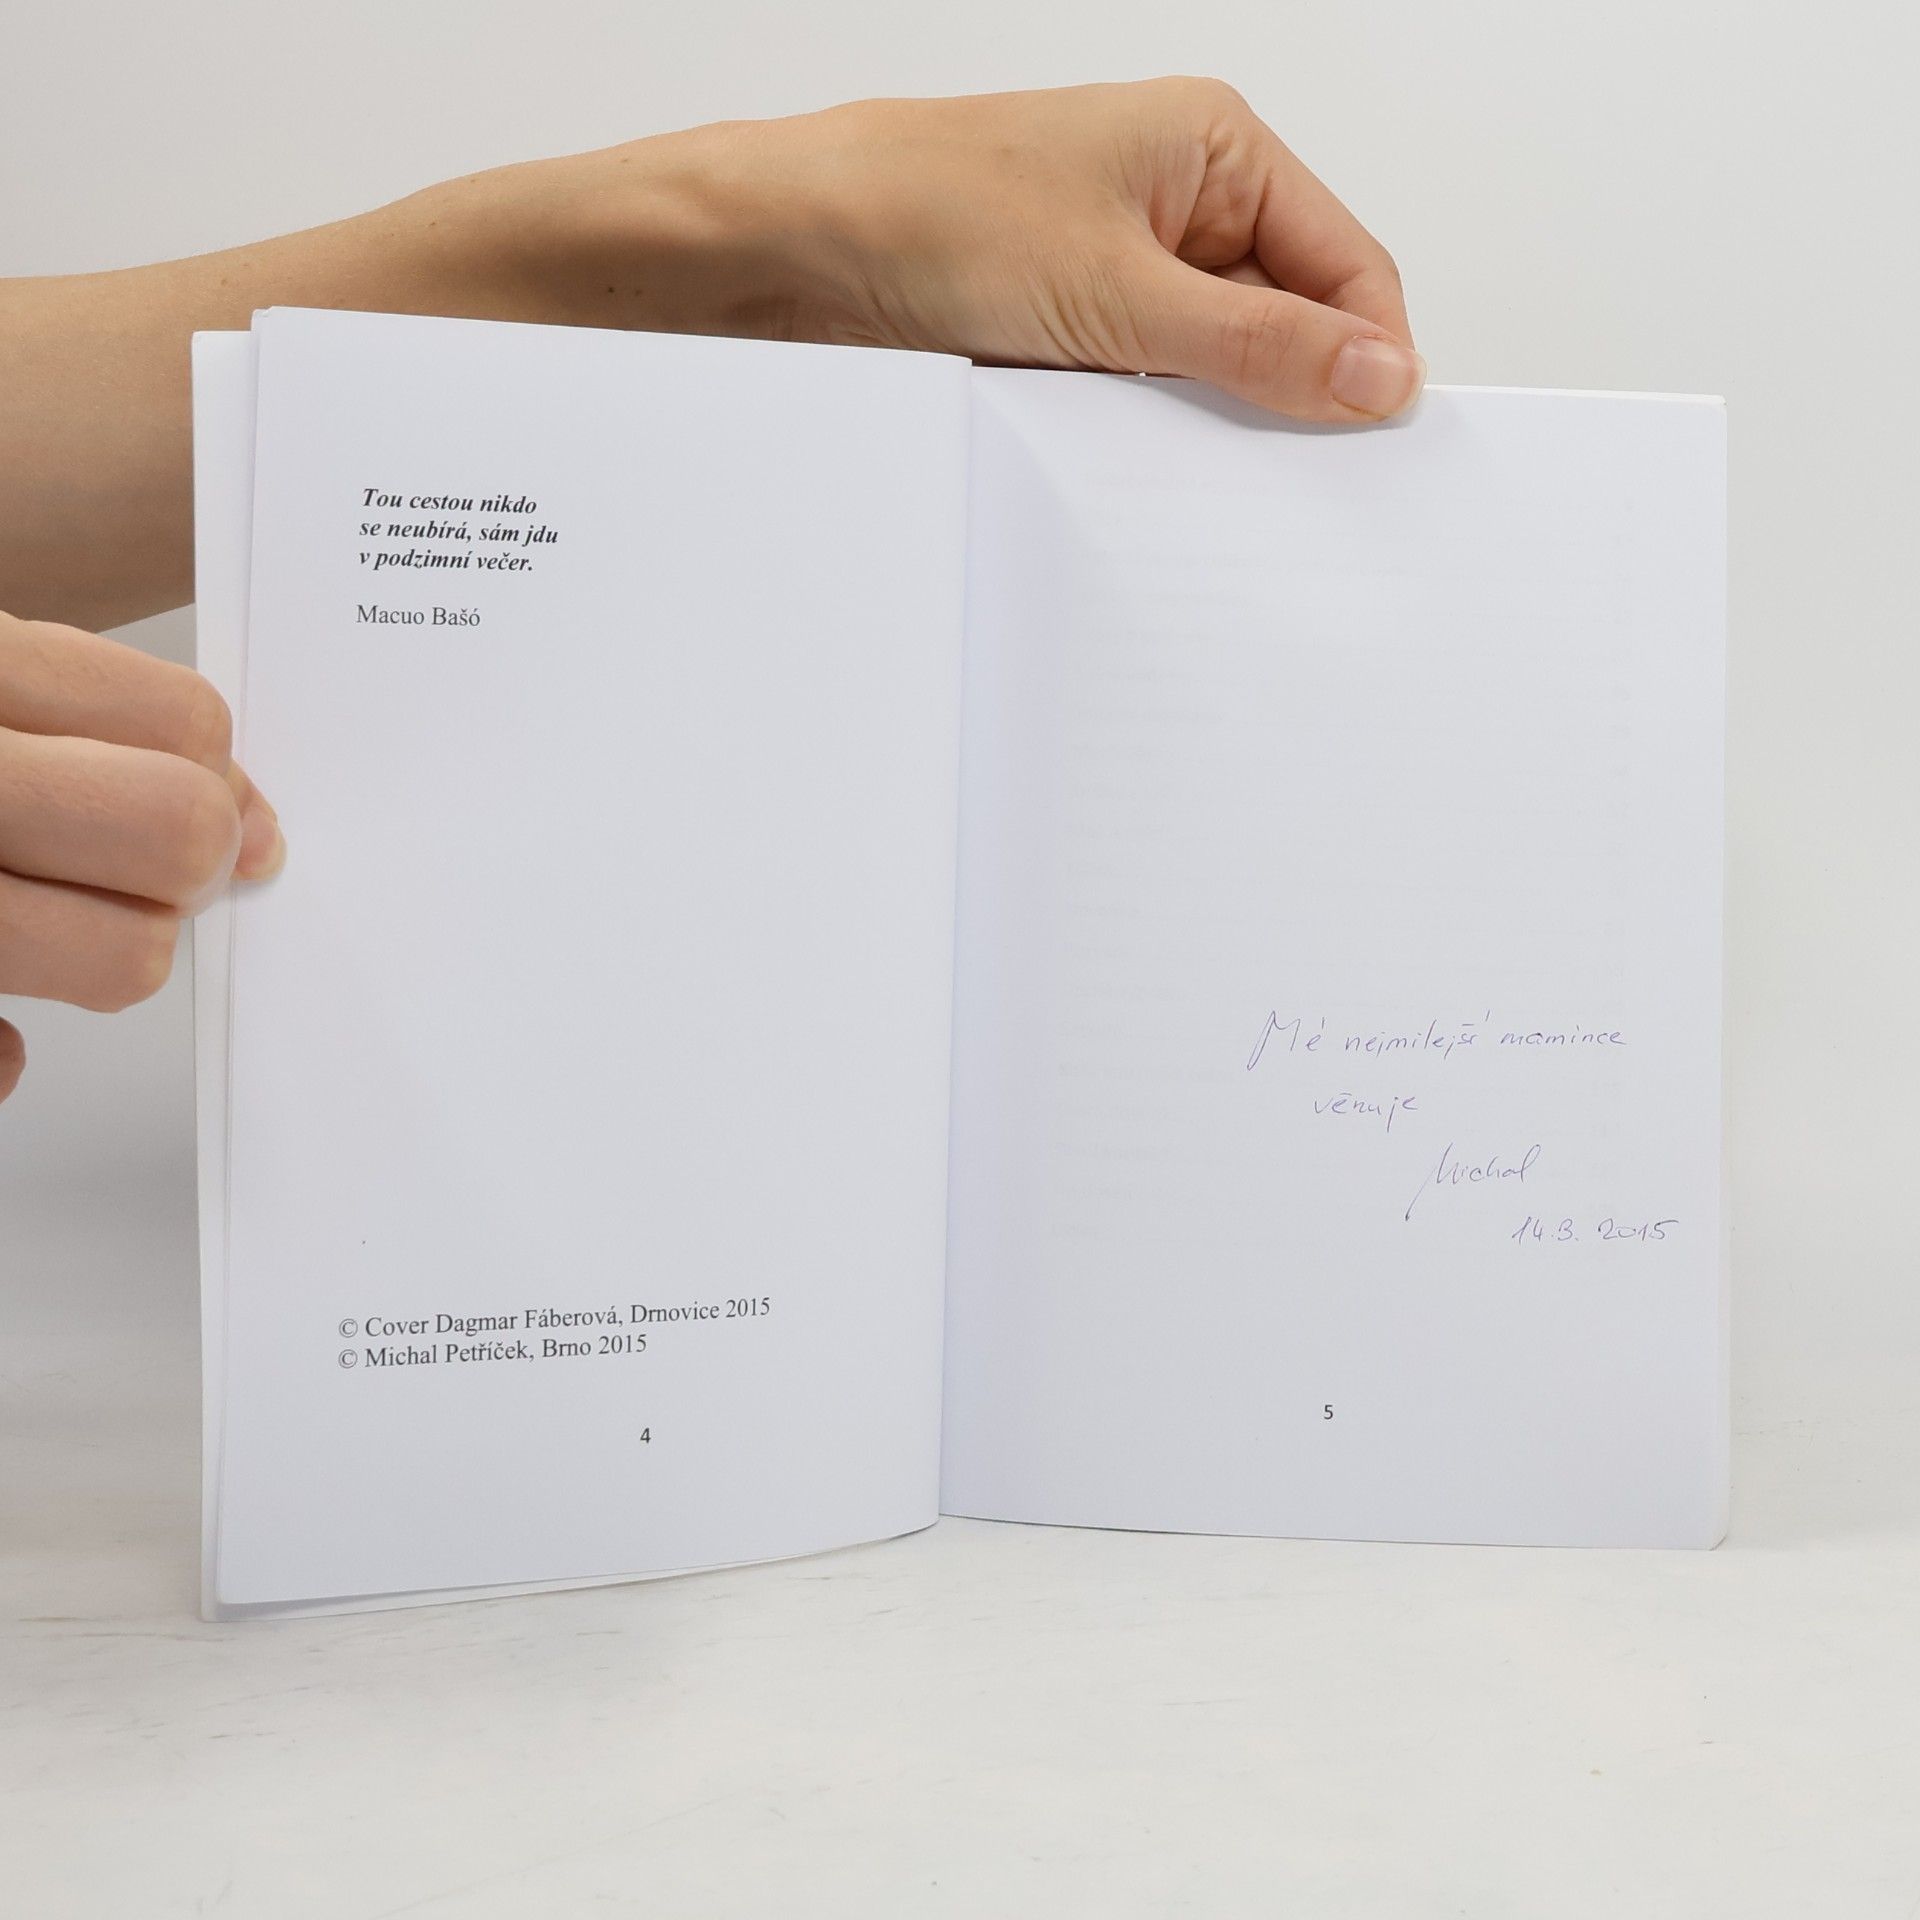 Tou cestou nikdo
se neubírá, sám jdu
v podzimní večer.
Macuo Bašó
© Cover Dagmar Fáberová, Drnovice 2015
© Michal Petříček, Brno 2015
4
Mé nejmilejší mamince
věnuje
Michal
14.3. 2015
5